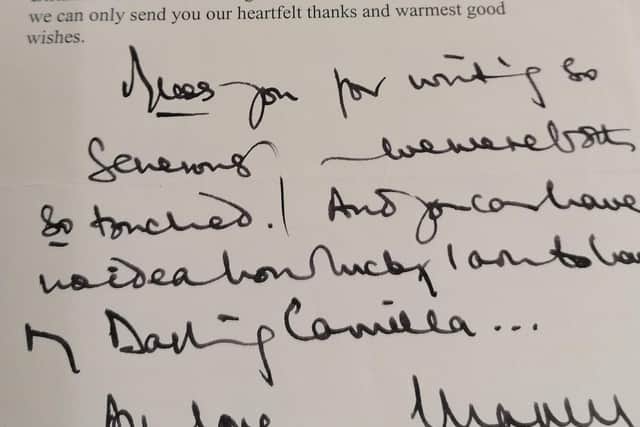 we can only send you our heartfelt thanks and warmest good
wishes.
Bless you for writing so
generously – we were both
so touched! And you can have
no idea how lucky I am to have
my Darling Camilla ...